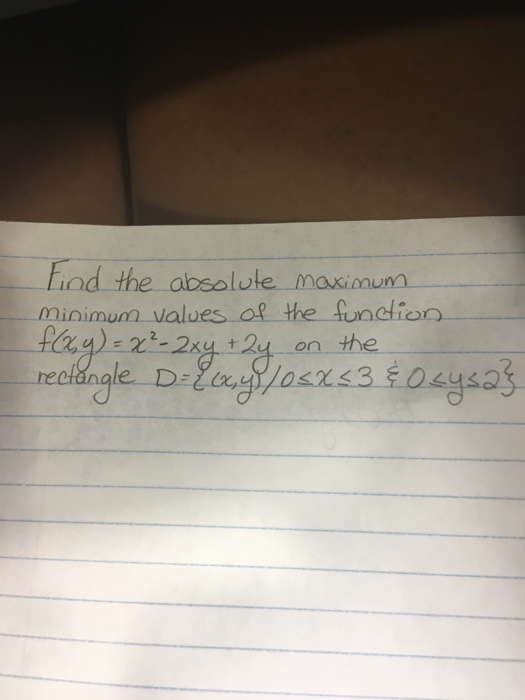 Find the absolute maximum
minimum values of the function
f(x,y) = x² - 2xy + 2y on the
rectangle D = {(x,y) / 0 ≤ x ≤ 3 & 0 ≤ y ≤ 2}